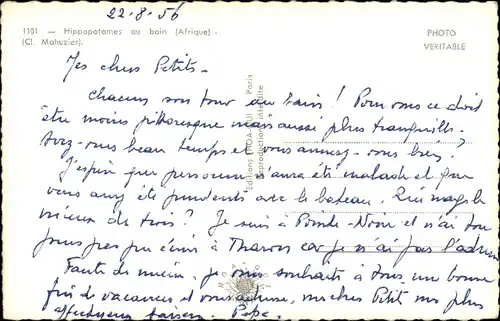 22-8-56
1101. — Hippopotames au bain (Afrique) -
(Cl. Mahuzier).
PHOTO
VERITABLE
Mes chers Petits -
Chacun son tour au bain ! Pour vous ce doit
être moins pittoresque mais aussi plus tranquille.
Avez-vous beau temps et vous amusez-vous bien ?
J'espère que personne n'aura été malade et que
vous avez été prudents avec le bateau. Qui nage le
mieux de trois ? Je suis à Pointe-Noire et n'ai tou
jours pas pu écrire à Tharon car je n'ai pas l'adresse
Faute de mieux, je vous souhaite à tous une bonne
fin de vacances et vous adresse, mes chers Petits mes plus
affectueux baisers. Papa.
Editions Paris
Reproduction interdite